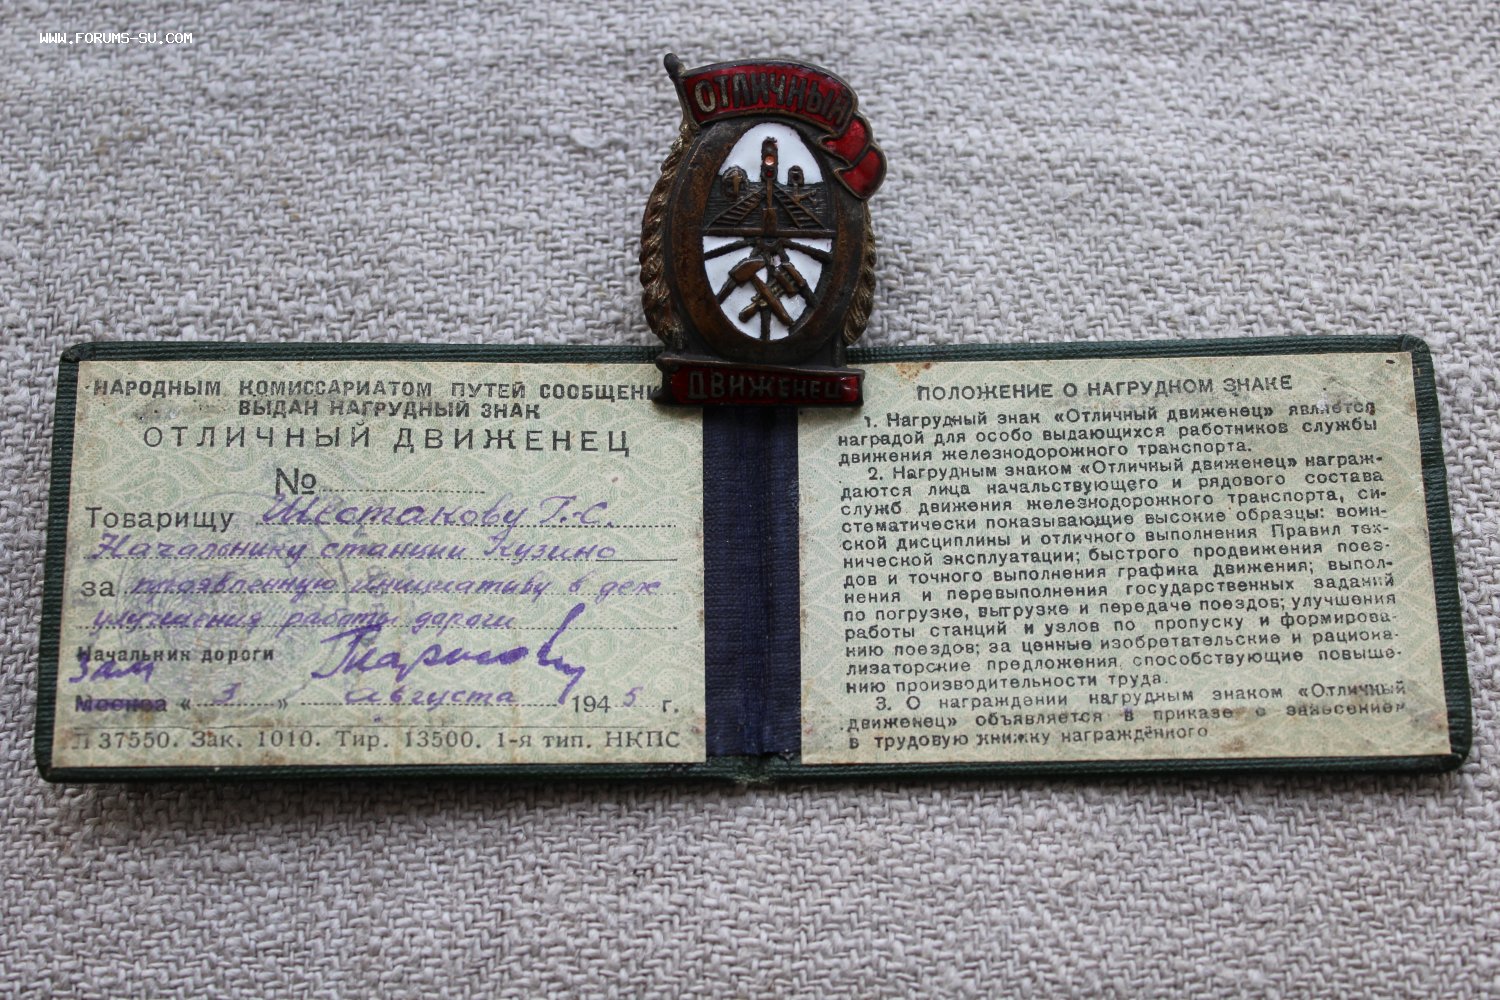 WWW.FORUMS-SU.COM
ОТЛИЧНЫЙ
ДВИЖЕНЕЦ
НАРОДНЫМ КОМИССАРИАТОМ ПУТЕЙ СООБЩЕНИ
ВЫДАН НАГРУДНЫЙ ЗНАК
ОТЛИЧНЫЙ ДВИЖЕНЕЦ
№
Товарищу Г.С.
Начальнику станции Кузино
за проявленную инициативу в деле
улучшения работы дороги
Начальник дороги
Зам
Москва « 3 » августа 1945 г.
Л 37550. Зак. 1010. Тир. 13500. 1-я тип. НКПС
ПОЛОЖЕНИЕ О НАГРУДНОМ ЗНАКЕ
1. Нагрудный знак «Отличный движенец» является
наградой для особо выдающихся работников службы
движения железнодорожного транспорта.
2. Нагрудным знаком «Отличный движенец» награж-
даются лица начальствующего и рядового состава
служб движения железнодорожного транспорта, си-
стематически показывающие высокие образцы: воин-
ской дисциплины и отличного выполнения Правил тех-
нической эксплуатации; быстрого продвижения поез-
дов и точного выполнения графика движения; выпол-
нения и перевыполнения государственных заданий
по погрузке, выгрузке и передаче поездов; улучшения
работы станций и узлов по пропуску и формирова-
нию поездов; за ценные изобретательские и рациона-
лизаторские предложения, способствующие повыше-
нию производительности труда.
3. О награждении нагрудным знаком «Отличный
движенец» объявляется в приказе с занесением
в трудовую книжку награждённого